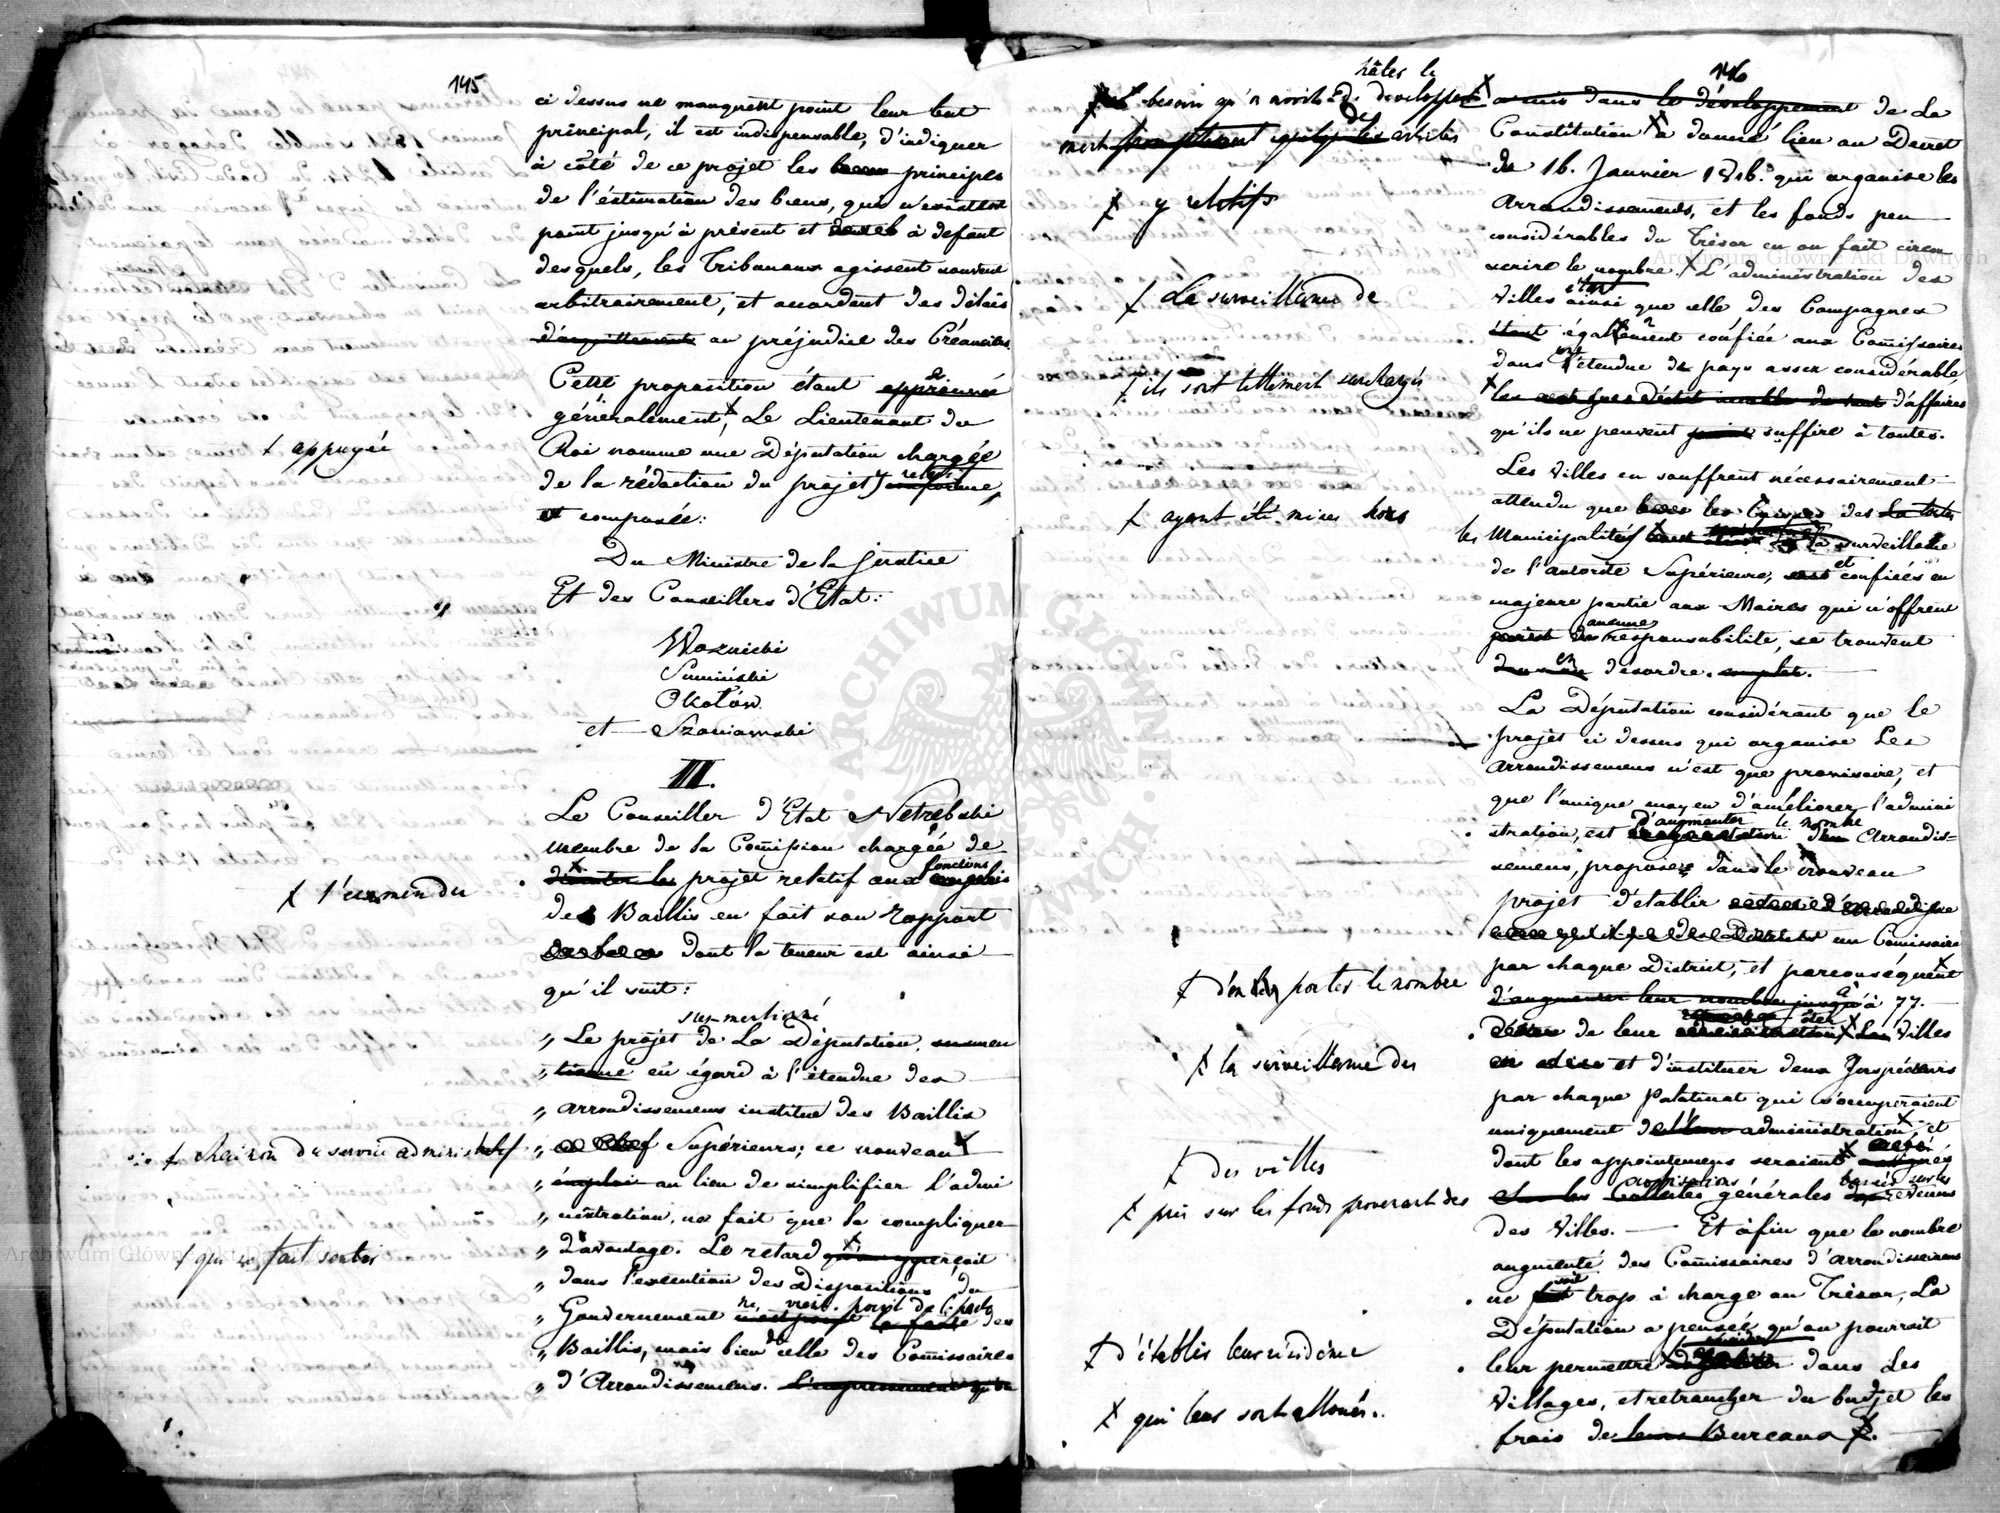 145
ci dessus ne manquent point leur but
principal, il est indispensable, d'indiquer
à côté de ce projet les principes
de l'éstimation des biens, qui n'existent
point jusqu'à présent et à defaut
desquels, les Tribunaux agissent souvent
arbitrairement, et accordent des délais
d'acquittement au préjudice des Créanciers.
Cette proposition étant approuvée
généralement, Le Lieutenant du
ɫ appuyée
Roi nomme une Députation chargée
de la rédaction du projet relatif
et composée:
Du Ministre de la justice
Et des Conseillers d'Etat:
Woznicki
Sumiński
Okołów
et Szaniawski
III.
Le Conseiller d'Etat Netrębski
membre de la Comission chargée de
ɫ l'examen du
discuter les projet relatif aux fonctions emplois
des Baillis en fait son rapport
dont la teneur est ainsi
qu'il suit:
sus-mentioné
„ Le projet de La Députation susmen
„ tionné eu égard à l'étendue des
„ arrondissemens institue des Baillis
„ Supérieurs; ce nouveau
ɫ chainon du service administratif
„ emploi au lieu de simplifier l'admi
„ nistration, ne fait que la compliquer
„ d'avantage. Le retard qu'on apperçoit
ɫ qui se fait sentir
„ dans l'exécution des Dispositions du
ne vient point de la part
„ Gouvernement n'est point la faute des
„ Baillis, mais bien de celle des Comissaires
„ d'Arrondissemens.
146
hâter le
besoin qu'on avoit de développe
ment des articles
a mis dans le développement de La
Constitution a donné lieu au Decret
ɫ y relatifs
du 16. Janvier 1816. qui organise les
Arrondissements, et les fonds peu
considérables du Trésor en ont fait circon
scrire le nombre. L'administration des
étant
ɫ La surveillance de
Villes ainsi que celle des Campagnes
étant également confiée aux Comissaires
dans une étendue de pays assez considérable,
ɫ ils sont tellement surchargés
d'affaires
qu'ils ne peuvent point suffire à toutes.
Les Villes en souffrent nécessairement
attendu que les Caisses des
ɫ ayant été mises hors
les Municipalités la surveillance
de l'autorité Supérieure, et confiées en
majeure partie aux Maires qui n'offrent
aucune
point responsabilité, se trouvent
en désordre. complet.
La Députation considérant que le
projet ci dessus qui organise Les
Arrondissemens n'est que provisoire, et
que l'unique moyen d'améliorer l'admini
d'augmenter le nombre
stration, est d'Arrondis-
semens, propose dans le nouveau
projet d'établir
un Comissaire
par chaque District, et par conséquent
ɫ d'en porter le nombre
d'augmenter leur nombre jusqu'à à 77.
ôter
ɫ la surveillance des
de leur Les Villes
et d'instituer deux Inspécteurs
par chaque Palatinat qui s'occuperaient
uniquement de leur administration, et
ɫ des villes
dont les appointemens seraient assignés
ɫ pris sur les fonds provenant des
générales basées sur les revenus
des Villes. — Et à fin que le nombre
augmenté des Comissaires d'arrondissemens
ne soit trop à charge au Trésor, La
Députation a pensée qu'on pourrait
ɫ d'établir leur résidence
leur permettre dans Les
Villages, et retrancher du budjet les
ɫ qui leur sont alloués.
frais de leurs Bureaux
ARCHIWUM GŁÓWNE AKT DAWNYCH
Archiwum Główne Akt Dawnych
Archiwum Główne Akt Dawnych